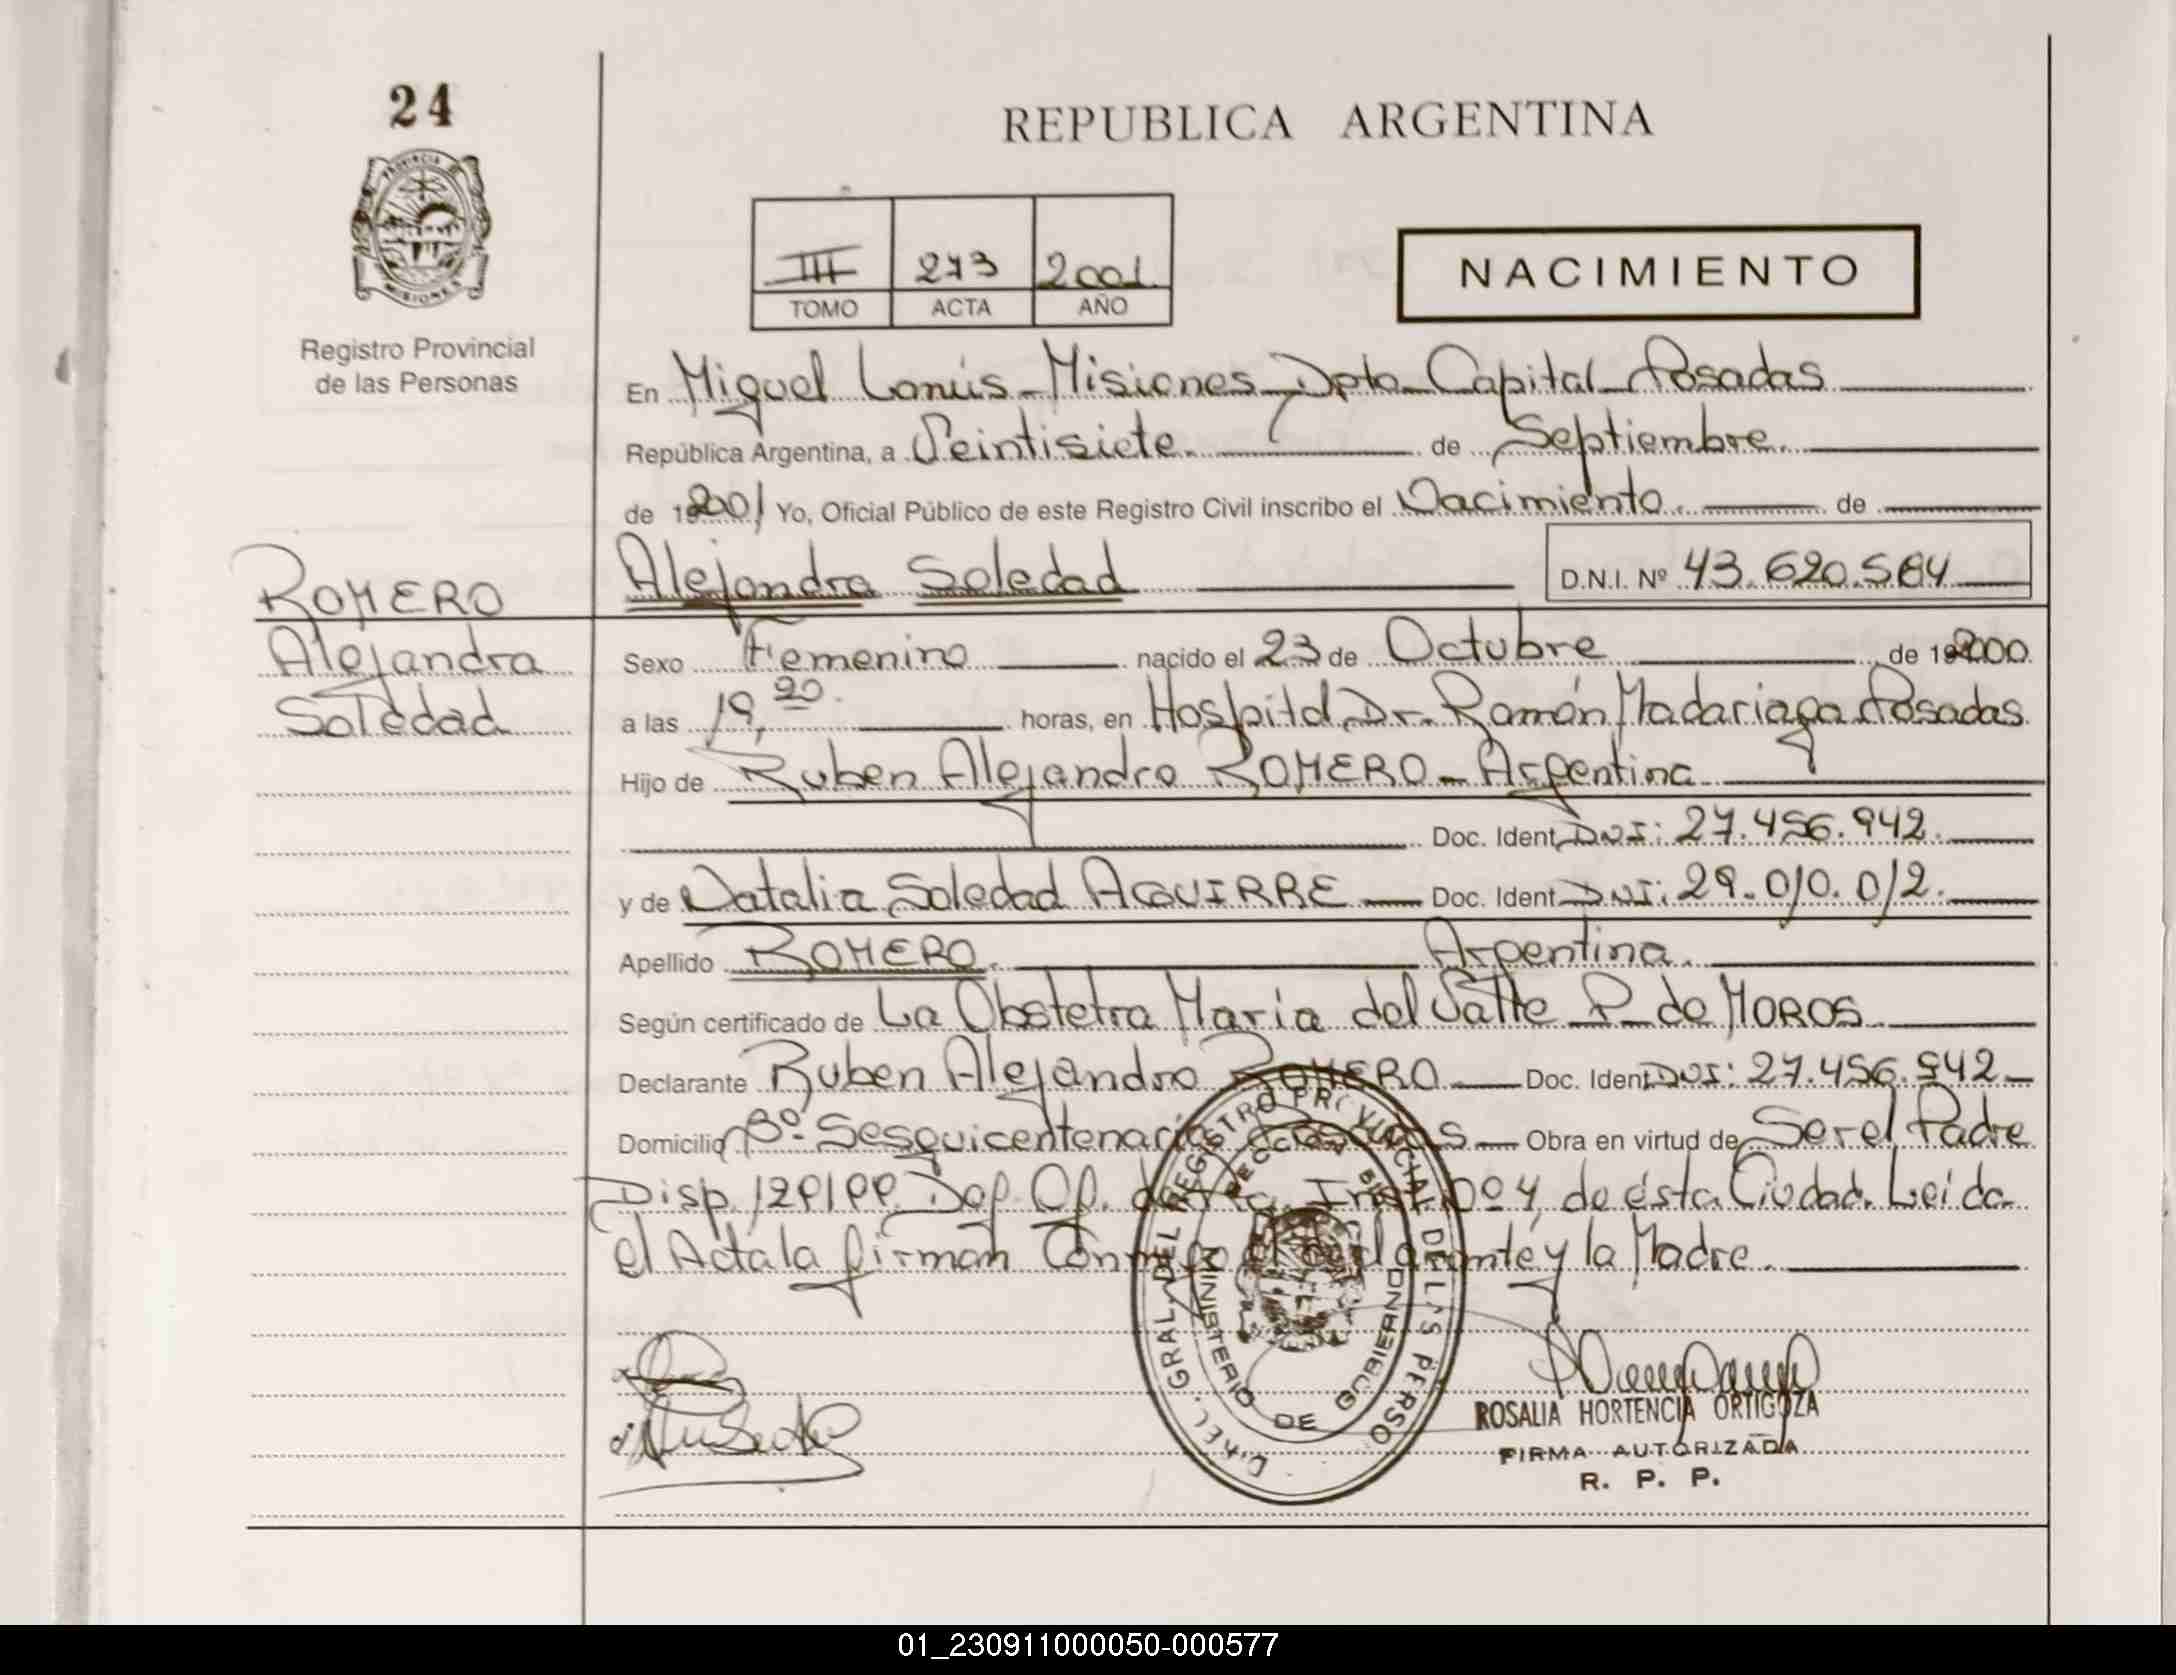 24
PROVINCIA
MISIONES
Registro Provincial
de las Personas
REPUBLICA ARGENTINA
III 273 2001
TOMO ACTA AÑO
NACIMIENTO
En Miguel Lanús - Misiones - Dpto Capital Posadas
República Argentina, a Veintisiete de Septiembre
de 2001 Yo, Oficial Público de este Registro Civil inscribo el Nacimiento de
ROMERO
Alejandra
Soledad
Alejandra Soledad D.N.I. Nº 43.620.584
Sexo Femenino nacido el 23 de Octubre de 2000
a las 19, horas, en Hospital Dr. Ramón Madariaga Posadas
Hijo de Ruben Alejandro ROMERO - Argentina
Doc. Ident DNI: 27.456.942.
y de Natalia Soledad AGUIRRE Doc. Ident DNI: 29.010.012.
Apellido ROMERO. Argentina.
Según certificado de La Obstetra Maria del Valle P. de MOROS
Declarante Ruben Alejandro ROMERO Doc. Ident DNI: 27.456.942
Domicilio Bº. Sesquicentenario Obra en virtud de Ser el Padre
Disp. Nº 4 de ésta Ciudad. Leida
el Acta la firman Conmigo el declarante y la Madre.
DIREC. GRAL. DEL REGISTRO PROVINCIAL DE LAS PERSO
MINISTERIO DE GOBIERNO
ROSALIA HORTENCIA ORTIGOZA
FIRMA AUTORIZADA
R. P. P.
01_230911000050-000577